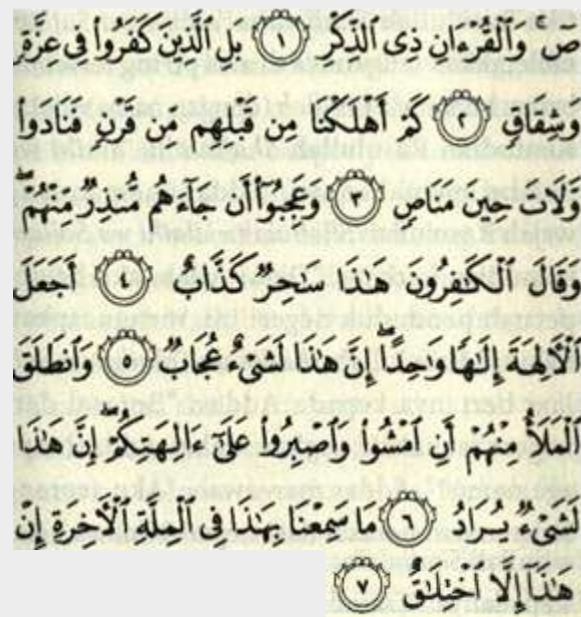 صٓ وَٱلۡقُرۡءَانِ ذِى ٱلذِّكۡرِ ١ بَلِ ٱلَّذِينَ كَفَرُواْ فِى عِزَّةٍ
وَشِقَاقٍ ٢ كَمۡ أَهۡلَكۡنَا مِن قَبۡلِهِم مِّن قَرۡنٍ فَنَادَواْ
وَّلَاتَ حِينَ مَنَاصٍ ٣ وَعَجِبُوٓاْ أَن جَآءَهُم مُّنذِرٌ مِّنۡهُمۡۖ
وَقَالَ ٱلۡكَٰفِرُونَ هَٰذَا سَٰحِرٌ كَذَّابٌ ٤ أَجَعَلَ
ٱلۡأٓلِهَةَ إِلَٰهًا وَٰحِدًاۖ إِنَّ هَٰذَا لَشَىۡءٌ عُجَابٌ ٥ وَٱنطَلَقَ
ٱلۡمَلَأُ مِنۡهُمۡ أَنِ ٱمۡشُواْ وَٱصۡبِرُواْ عَلَىٰٓ ءَالِهَتِكُمۡۖ إِنَّ هَٰذَا
لَشَىۡءٌ يُرَادُ ٦ مَا سَمِعۡنَا بِهَٰذَا فِى ٱلۡمِلَّةِ ٱلۡأٓخِرَةِ إِنۡ
هَٰذَآ إِلَّا ٱخۡتِلَٰقٌ ٧